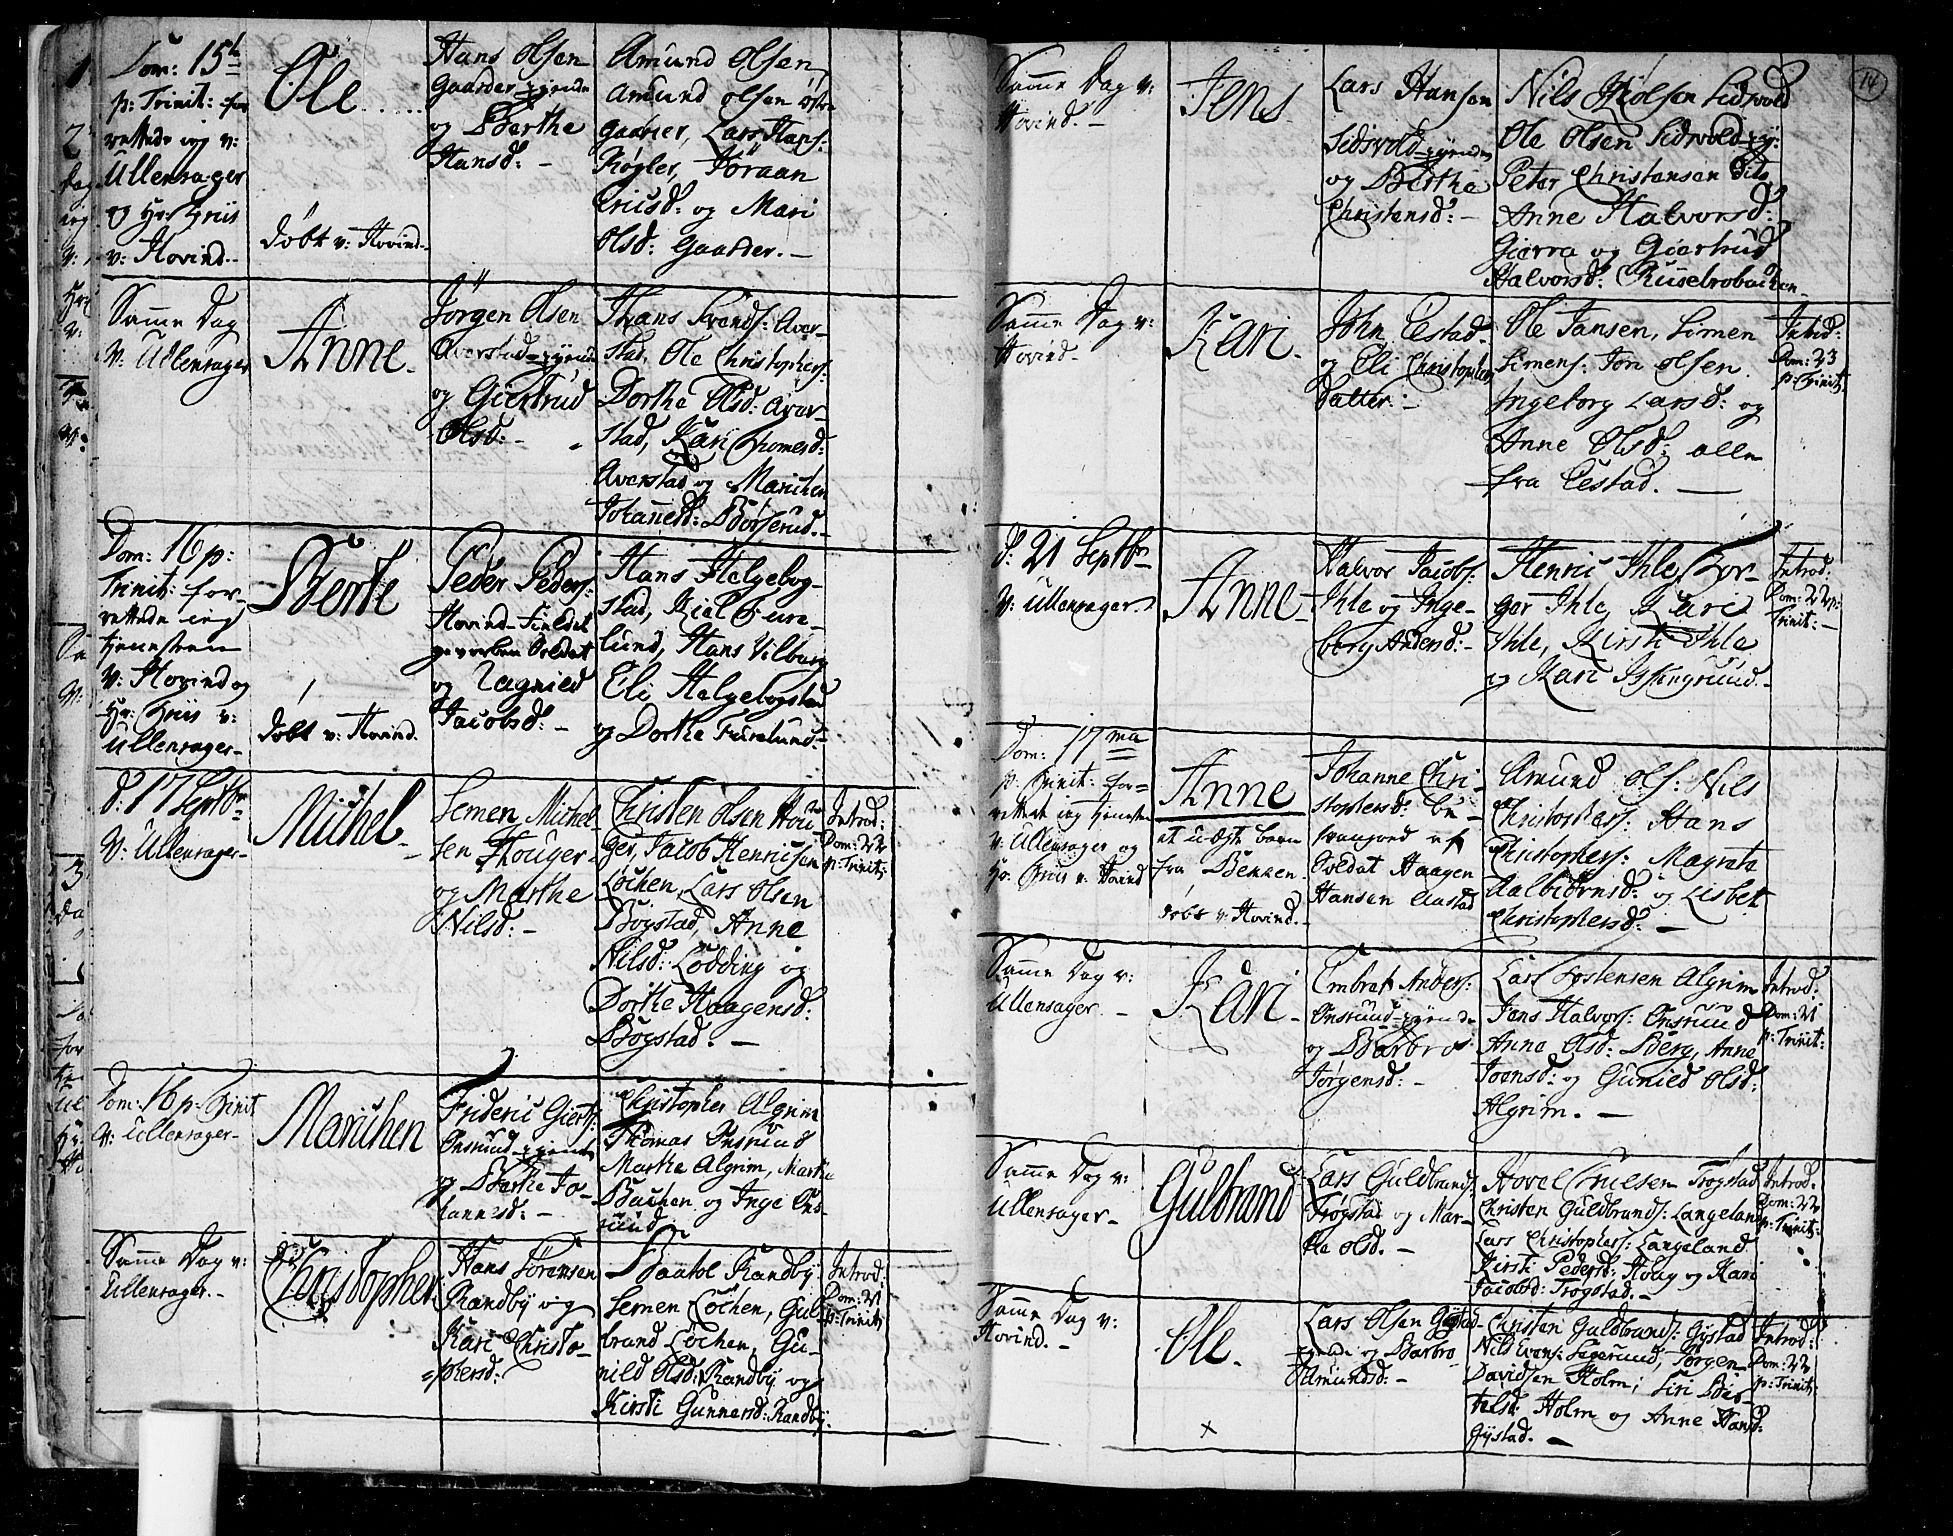 Dom: 15de
p: Trinit: for
rettede ieg v:
Ullensager
og Hr: Friis
v: Hovind.
Ole
døbt v: Hovind.
Hans Olsen
Gaarder
og Berthe
Hansd: -
Amund Olsen
Amund Olsen
Gaarder, Lars Hans:
Kogler, Jöraan
Ericsd: og Mari
Olsd: Gaarder. -
Samme Dag
V: Ullensager
Anne.
Jörgen Olsen
Averstad
og Giertrud
Olsd: -
Hans Svends: Aver-
stad, Ole Christophers:
Dorthe Olsd: Aver-
stad, Kari Thomesd:
Averstad og Marichen
Johanesd: Børserud. -
Dom: 16 p:
Trinit: for-
rettede ieg
tienesten
v: Hovind og
Hr: Friis v:
Ullensager-
Berte
døbt v: Hovind.
Peder Peders:
Hovind
geworben Soldat
og Ragnied
Jacobsd: -
Hans Helgebog-
stad, Kiel Fure-
lund, Hans Vilberg
Eli Helgebogstad
og Dorthe Furelund.
d: 17 Septbr
V: Ullensager-
Michel
Semen Michel-
sen Houger
og Marthe
Nilsd: -
Christen Olsen Hou-
ger, Jacob Henricsen
Løchen, Lars Olsen
Bogstad, Anne
Nilsd: Lödding og
Dorthe Haagensd:
Bogstad. -
Introd:
Dom: 22
p: Trinit:
Dom: 16 p: Trinit
V: Ullensager-
Marichen
Frideric Gierts:
Onsrud
og Berthe Jo-
hannesd: -
Christopher Algrim
Thomas Onsrund
Marthe Algrim, Marthe
Bachen og Inge Ons-
rüud
Samme Dag v:
Ullensager. -
Christopher
Hans Sörensen
Randby og
Kari Christo-
phersd:
Baatol Randby
Semen Löchen, Gul-
brand Löchen, Gu-
nild Olsd: Randby og
Kirsti Gunnersd: Randby.
Introd:
Dom: 21
p: Trinit:
14
Samme Dag v:
Hovind. -
Jens
Lars Hansen
Sidsvold
og Berthe
Christensd: -
Nils Kiolsen Sidsvold
Ole Olsen Sidsvold
Peter Christensen dito
Anne Halvorsd:
Gierra og Giertrud
Halvorsd:
Samme Dag v:
Hovind-
Kari
John Eestad
og Eli Christophers
datter. -
Ole Jansen, Simen
Simens: Jon Olsen
Ingeborg Larsd: og
Anne Olsd: alle
fra Eestad. -
Introd:
Dom: 23
p: Trinit:
d: 21 Septbr
V: Ullensager
Anne
Halvor Jacobs:
Ihle og Inge-
borg Andersd: -
Henric Ihle, Bor-
ger Ihle, Kari
Ihle, Kirsti Ihle
og Kari
Introd:
Dom: 22 p:
Trinit: -
Dom: 17ma
p: Trinit: for-
rettede ieg tienesten
v: Ullensager og
Hr: Friis v: Hovind
Anne
et uægte barn
fra
døbt v: Hovind.
Johanne Chri-
stophersd: be-
svangred af
Soldat Haagen
Hansen Aastad
Amund Ols: Nils
Christophers: Hans
Christophers: Magrete
Aalbiörnsd: og Lisbet
Christophersd: -
Samme Dag v:
Ullensager. -
Kari
Embret Anders:
Onsrud
og Barbro
Jörgensd: -
Lars Tostensen Algrim
Jens Halvors: Onsrüud
Anne Olsd: Berg, Anne
Joensd: og Gunied Olsd:
Algrim. -
Introd:
Dom: 21
p: Trinit:
Samme Dag v:
Ullensager-
Gulbrand
Lars Guldbrands:
Trögstad og Mar-
the Olsd. -
Hovel Trogstad
Christen Guldbrands: Langeland
Lars Christophers: Langeland
Kirsti Pedersd: Houg og Kari
Jacobsd: Trogstad. -
Introd:
Dom: 22
p: Trinit:
Samme Dag v:
Hovind. -
Ole.
Lars Olsen Gystad
og Barbro
Amundsd: -
Christen Guldbrands: Gystad
Nils Segerüud, Jörgen
Davidsen Holm, Siri Ber-
telsd: Holm og Anne Hansd:
Gystad. -
Introd:
Dom: 22
p: Trinit: